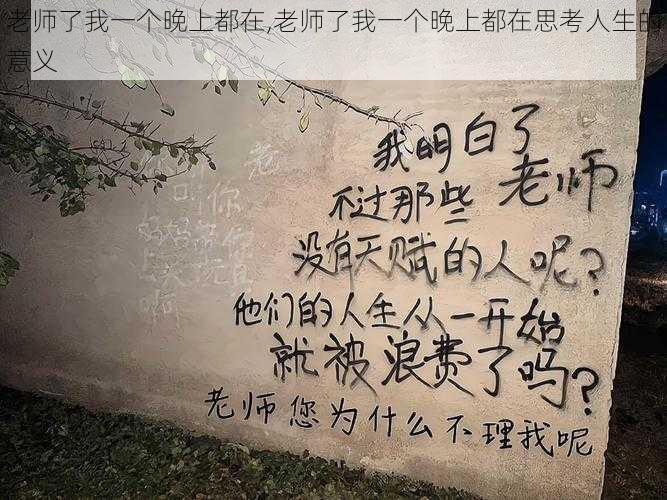 老师了我一个晚上都在,老师了我一个晚上都在思考人生的
意义
我明白了
老师
不过那些
没有天赋的人呢?
他们的人生从一开始
就被浪费了吗?
老师您为什么不理我呢